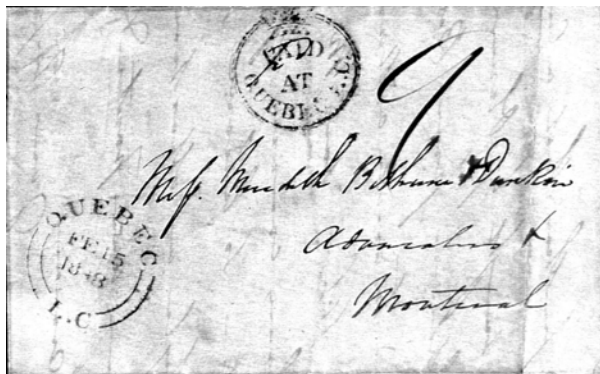 PAID
AT
QUEBEC L.C.
9
Messrs. Meredith Bethune & Dunkin
Advocates &
Montreal
QUEBEC
FE 15
1848
L.C